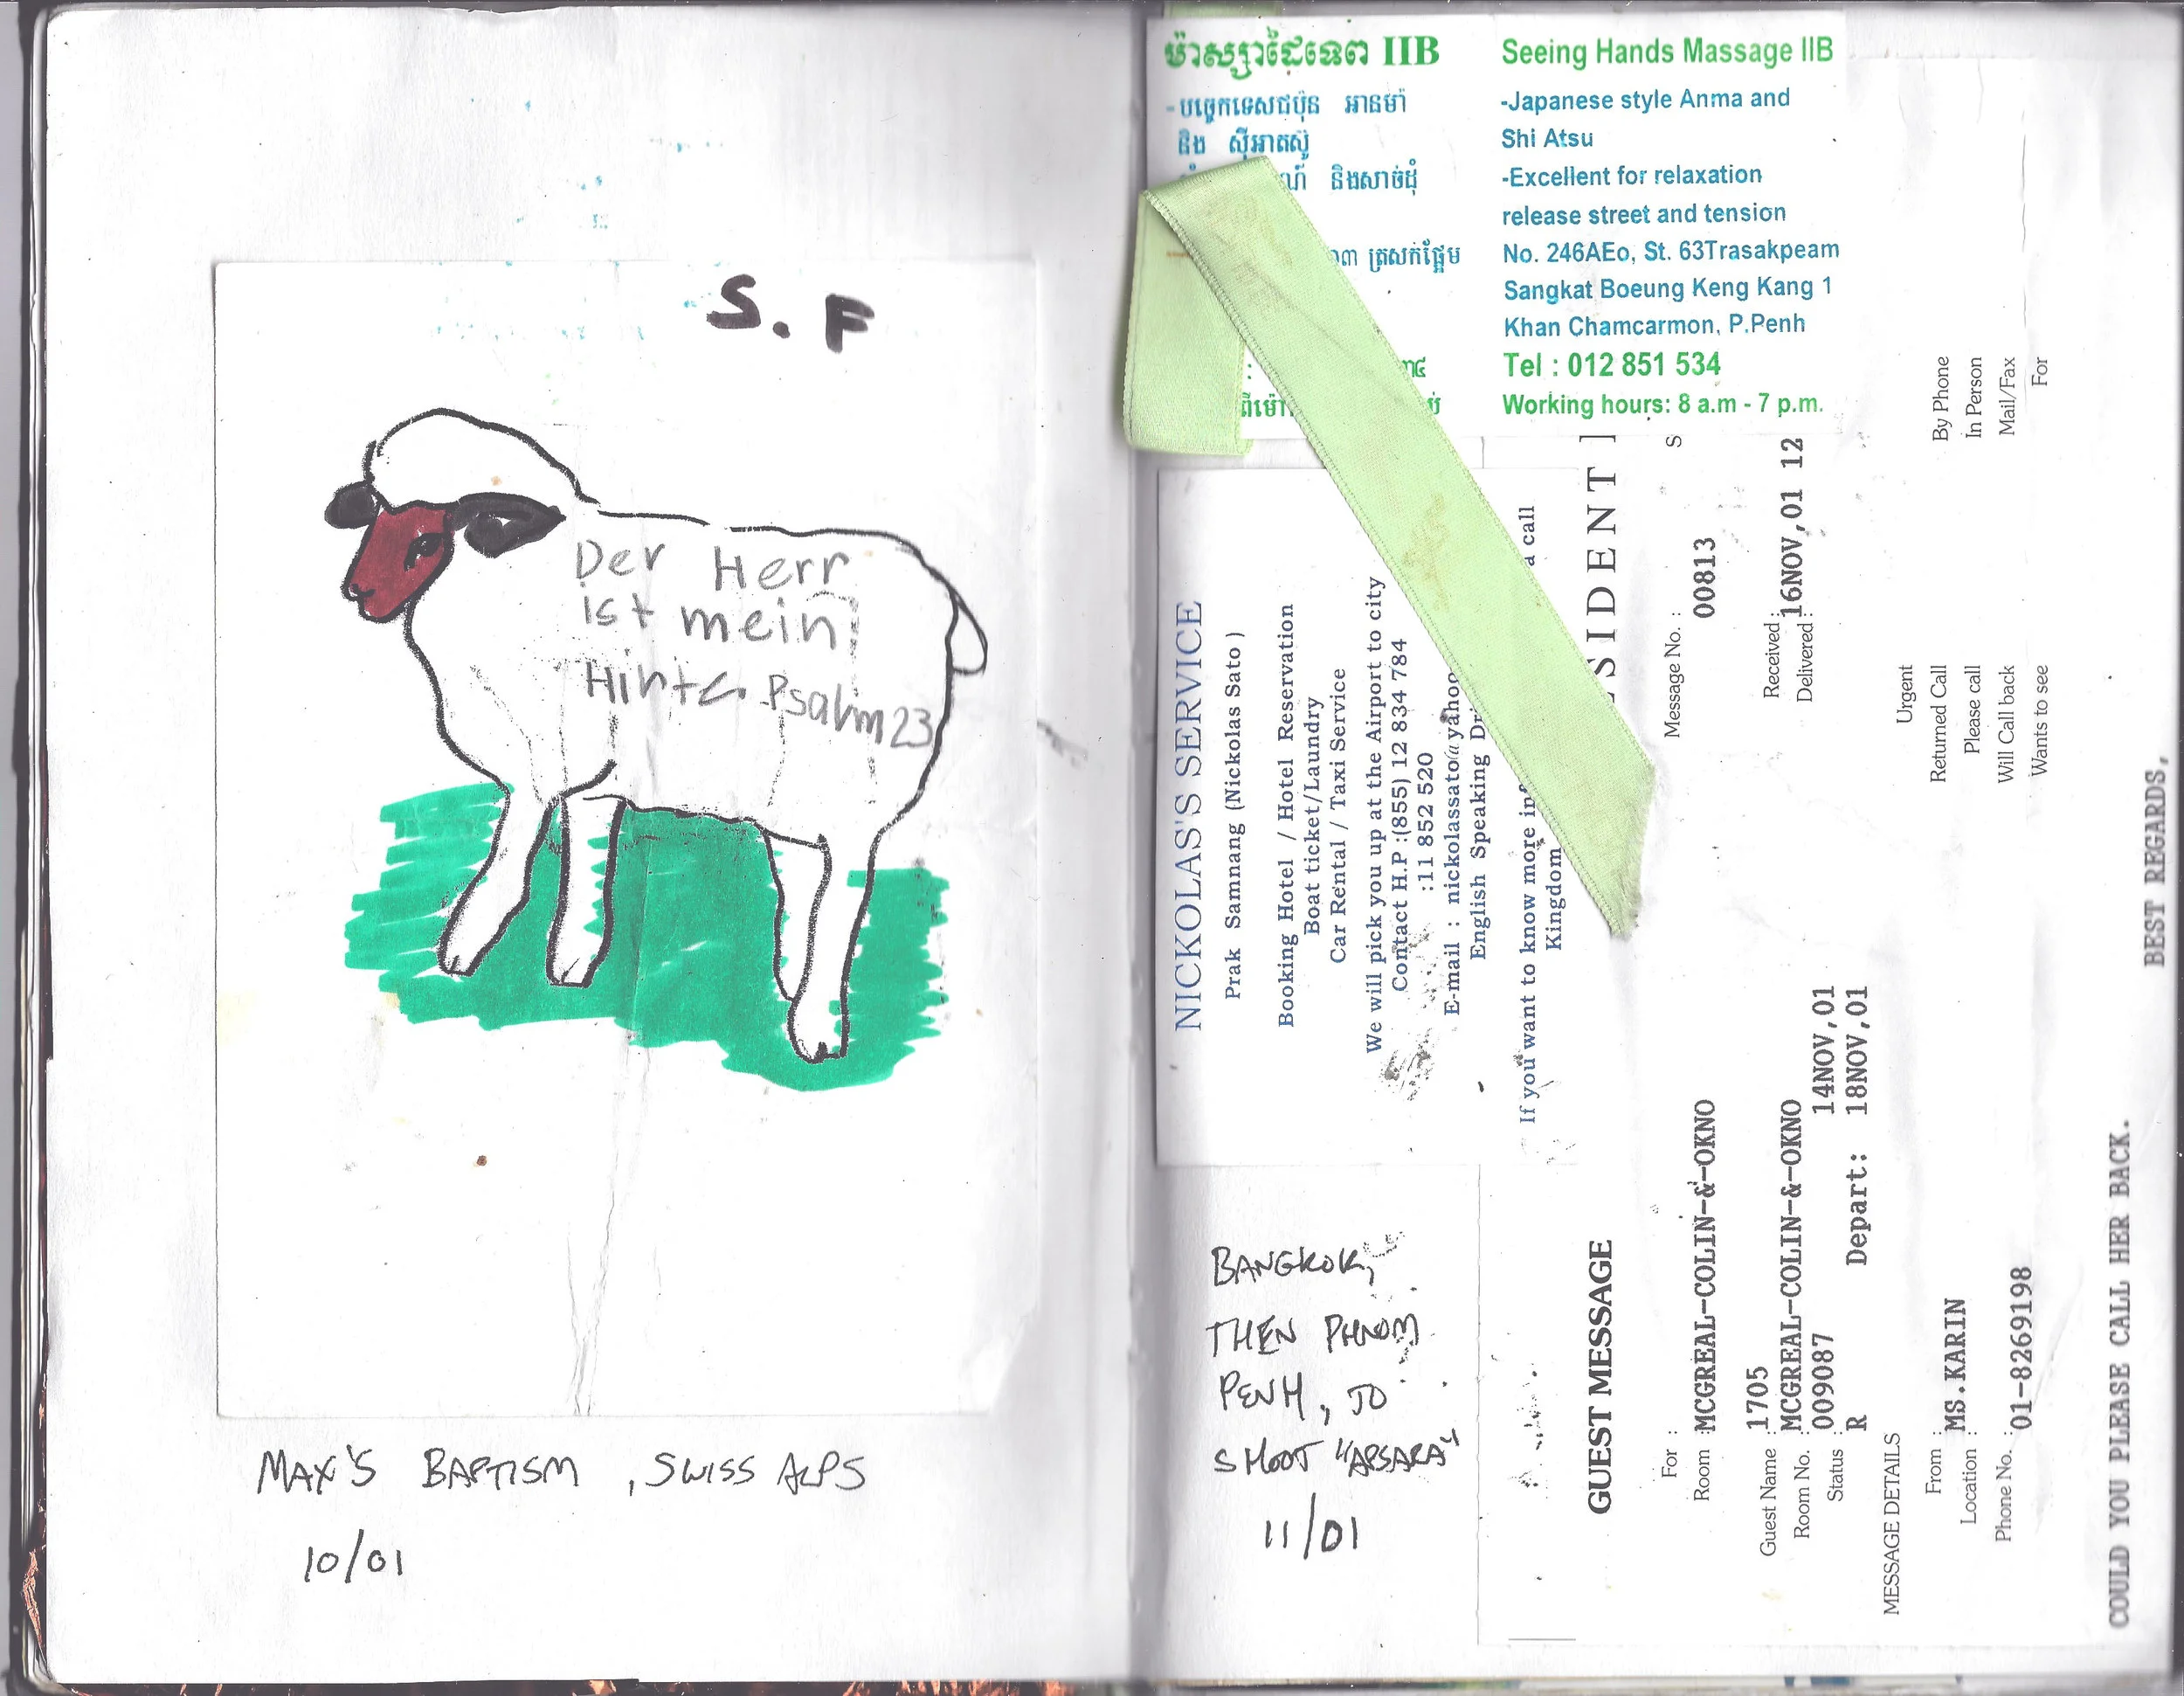 S. F
Der Herr
ist mein
Hirte Psalm 23
MAX'S BAPTISM, SWISS ALPS
10/01
ម៉ាស្សាដៃទេព IIB
-បច្ចេកទេសជប៉ុន អានម៉ា
និង ស៊ីអាតស៊ូ
និងសាច់ដុំ
ត្រសក់ផ្អែម
Seeing Hands Massage IIB
-Japanese style Anma and
Shi Atsu
-Excellent for relaxation
release street and tension
No. 246AEo, St. 63Trasakpeam
Sangkat Boeung Keng Kang 1
Khan Chamcarmon, P.Penh
Tel : 012 851 534
Working hours: 8 a.m - 7 p.m.
NICKOLAS'S SERVICE
Prak Samnang (Nickolas Sato )
Booking Hotel / Hotel Reservation
Boat ticket/Laundry
Car Rental / Taxi Service
We will pick you up at the Airport to city
Contact H.P :(855) 12 834 784
:11 852 520
E-mail : nickolassato@yahoo
English Speaking
If you want to know more a call
Kingdom
BANGKOK,
THEN PHNOM
PENH, TO
SHOOT "APSARA"
11/01
SIDENT
GUEST MESSAGE
For :
Message No. : 00813
Room : MCGREAL-COLIN-&-OKNO
Received : 16NOV,01 12
Delivered :
Guest Name : 1705
Room No. : MCGREAL-COLIN-&-OKNO
Status : 009087 14NOV,01
R Depart: 18NOV,01
MESSAGE DETAILS
Urgent
From : MS.KARIN
Returned Call
By Phone
Location :
Please call
In Person
Phone No. : 01-8269198
Will Call back
Mail/Fax
Wants to see
For
COULD YOU PLEASE CALL HER BACK.
BEST REGARDS,